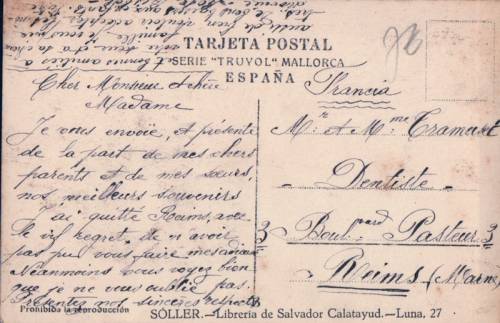 TARJETA POSTAL
SERIE "TRUVOL" MALLORCA
ESPAÑA
Cher Monsieur et chère
Madame
Je vous envoie, et présente
de la part de mes chers
parents et de mes sœurs,
nos meilleurs souvenirs
J'ai quitté Reims, avec
le regret, de n'avoir
pas pu vous faire mes adieux
Néanmoins vous voyez bien
que je ne vous oublie pas.
Présentez nos sincères respects
Francia
Mr et Mme
Dentiste
3 Boulvard Pasteur 3
Reims (Marne)
Prohibida la reproducción
SÓLLER.—Librería de Salvador Calatayud.—Luna, 27